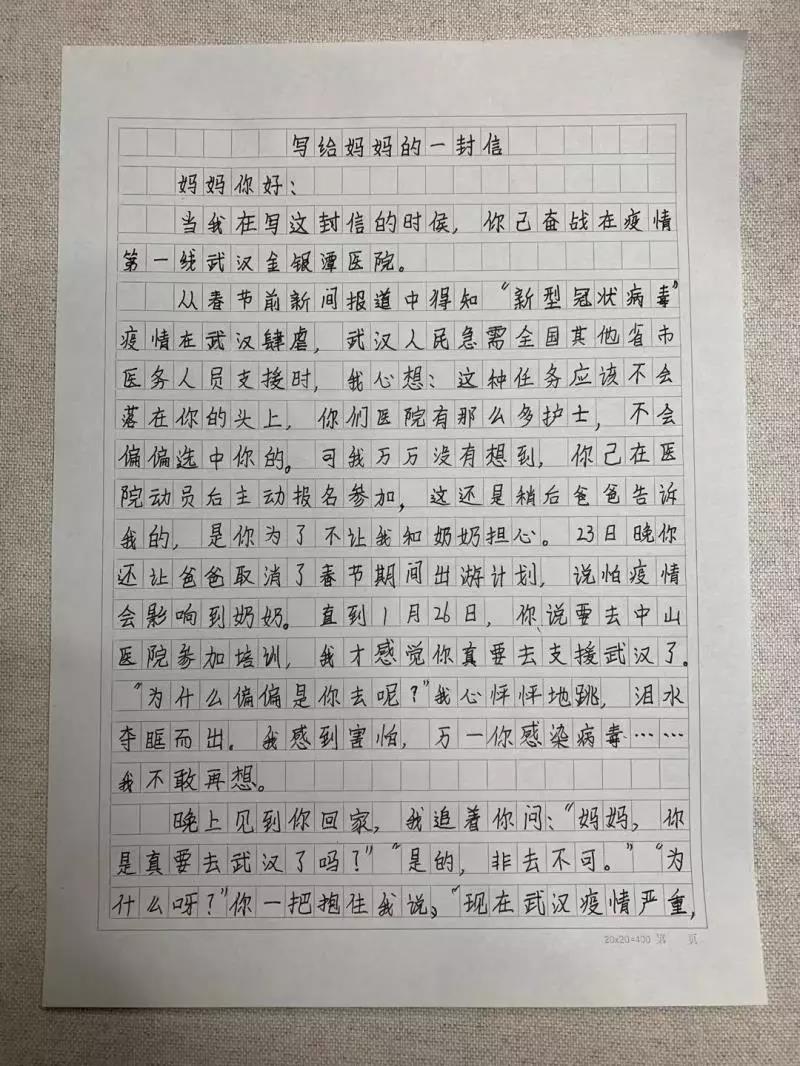 写给妈妈的一封信
妈妈你好：
当我在写这封信的时侯，你已奋战在疫情
第一线武汉金银潭医院。
从春节前新闻报道中得知“新型冠状病毒”
疫情在武汉肆虐，武汉人民急需全国其他省市
医务人员支援时，我心想：这种任务应该不会
落在你的头上，你们医院有那么多护士，不会
偏偏选中你的。可我万万没有想到，你已在医
院动员后主动报名参加，这还是稍后爸爸告诉
我的，是你为了不让我和奶奶担心。23日晚你
还让爸爸取消了春节期间出游计划，说怕疫情
会影响到奶奶。直到1月26日，你说要去中山
医院参加培训，我才感觉你真要去支援武汉了。
“为什么偏偏是你去呢？”我心怦怦地跳，泪水
夺眶而出。我感到害怕，万一你感染病毒……
我不敢再想。
晚上见到你回家，我追着你问：“妈妈，你
是真要去武汉了吗？”“是的，非去不可。”“为
什么呀？”你一把抱住我说，“现在武汉疫情严重，
20x20=400 第 页